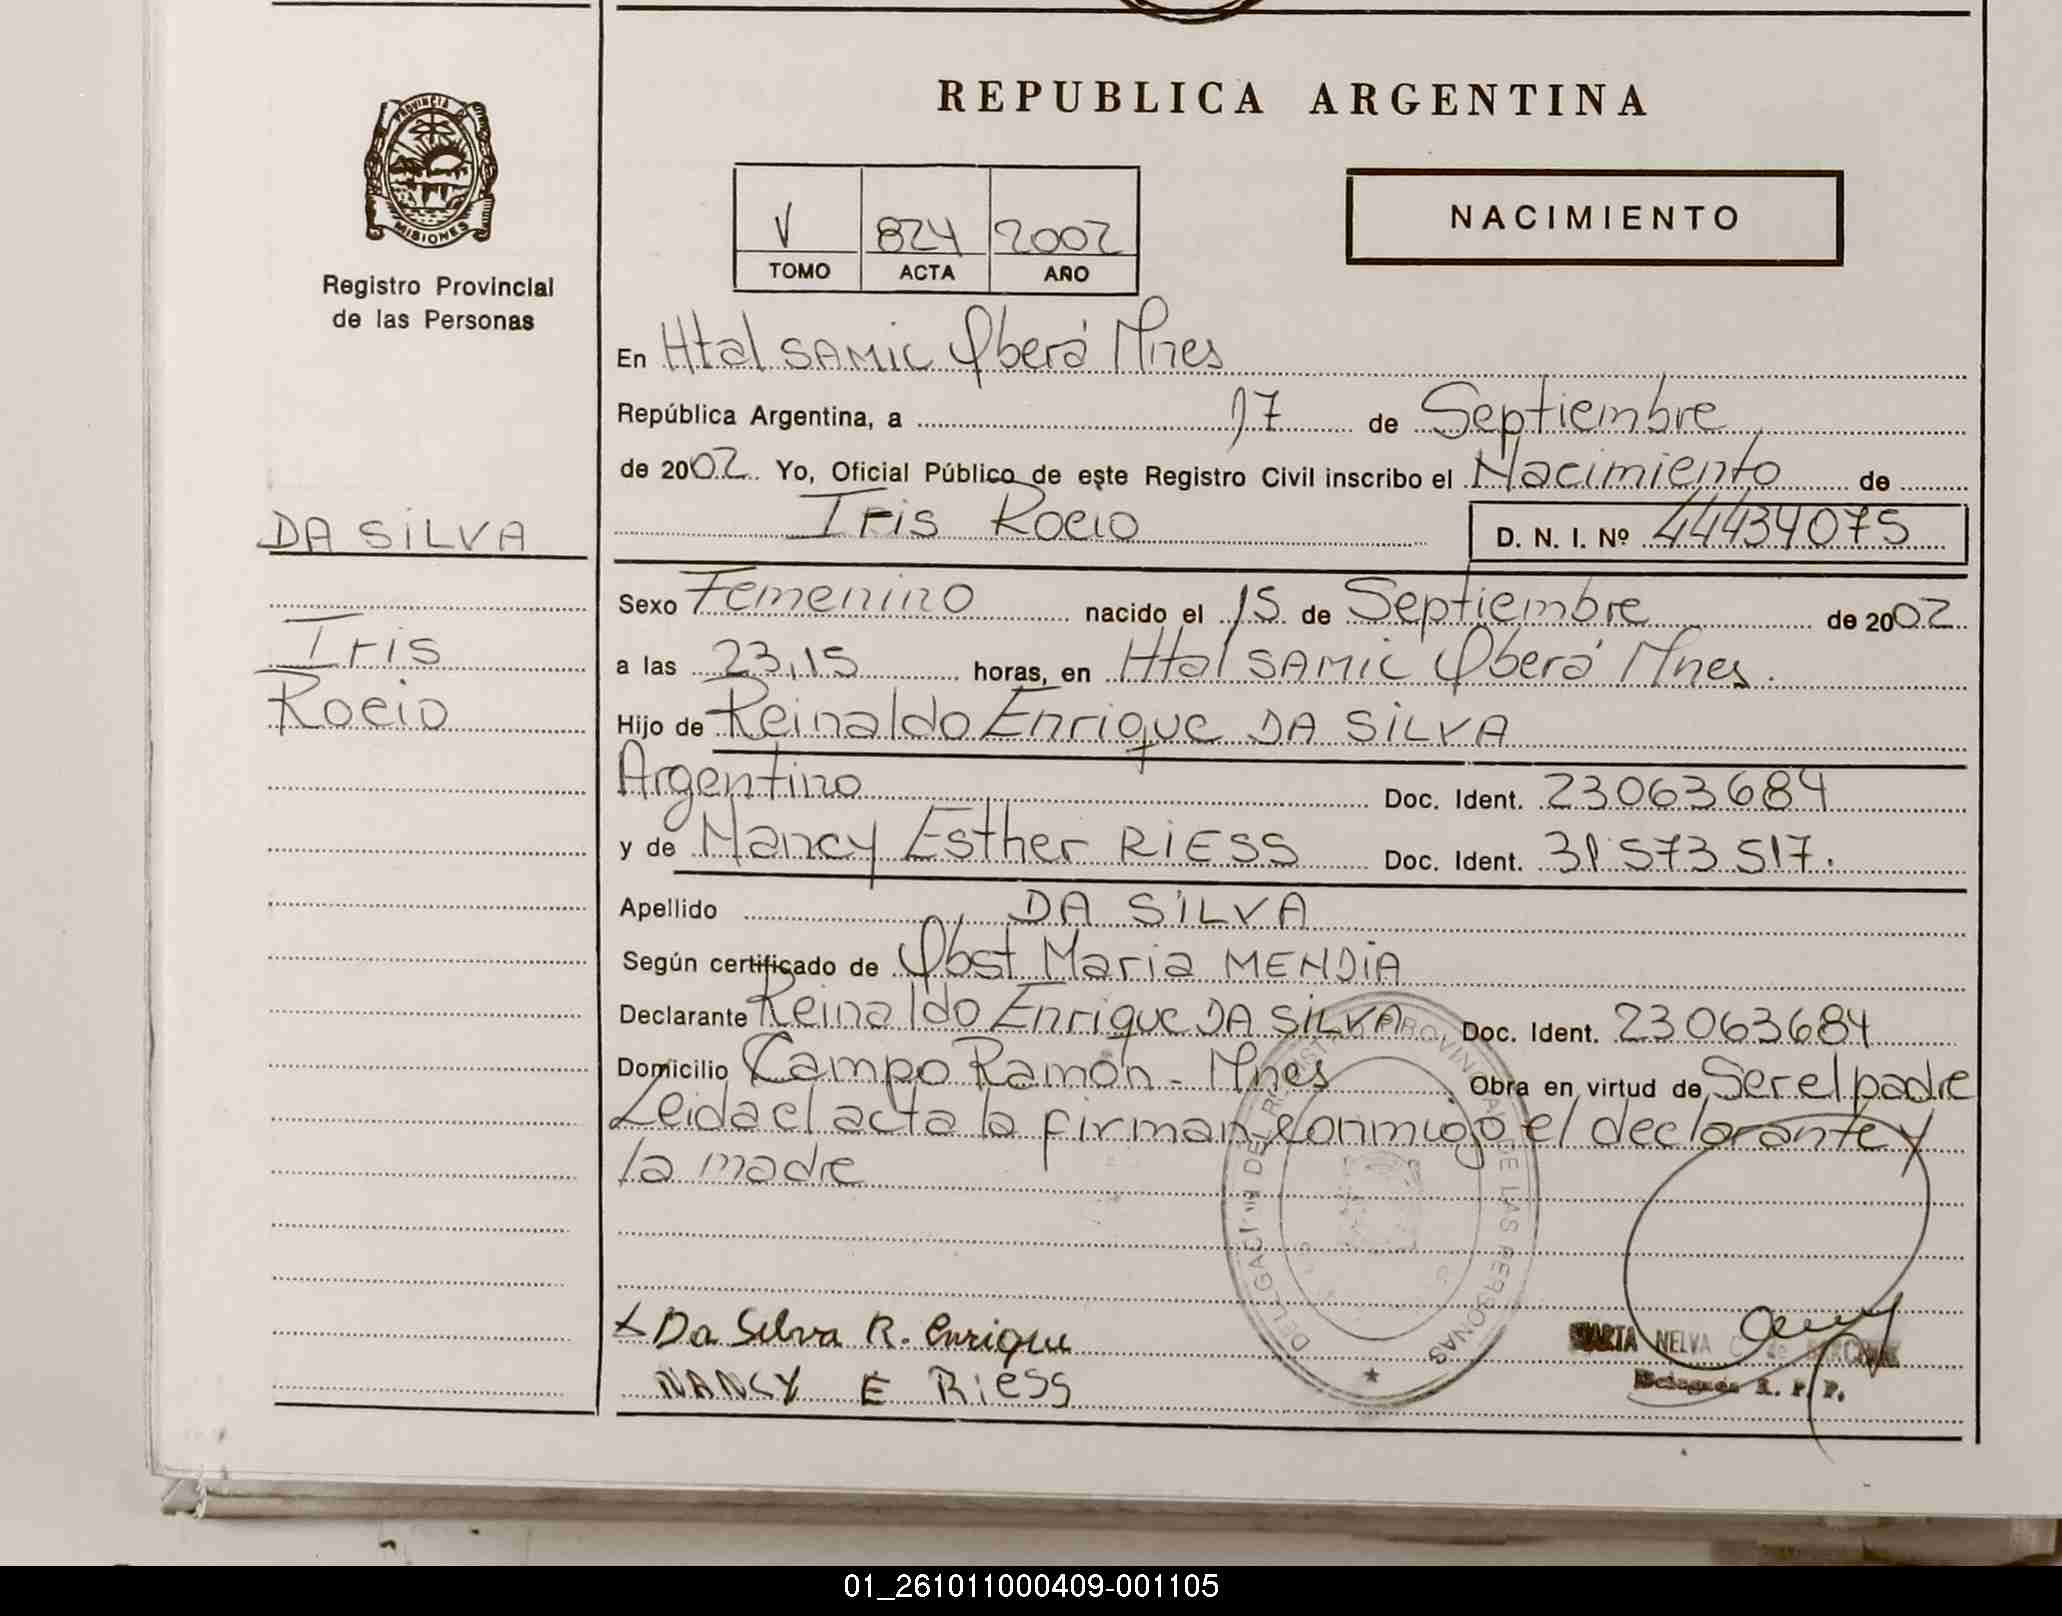 REPUBLICA ARGENTINA
PROVINCIA DE
MISIONES
Registro Provincial
de las Personas
V 824 2002
TOMO ACTA AÑO
NACIMIENTO
En Htal SAMIC Oberá Mnes
República Argentina, a 17 de Septiembre
de 2002 Yo, Oficial Público de este Registro Civil inscribo el Nacimiento de
Iris Rocio D. N. I. Nº 44434075
DA SILVA
Iris
Rocio
Sexo Femenino nacido el 15 de Septiembre de 2002
a las 23,15 horas, en Htal SAMIC Oberá Mnes.
Hijo de Reinaldo Enrique DA SILVA
Argentino Doc. Ident. 23063684
y de Nancy Esther RIESS Doc. Ident. 31 573 517.
Apellido DA SILVA
Según certificado de Obst Maria MENDIA
Declarante Reinaldo Enrique DA SILVA Doc. Ident. 23 063684
Domicilio Campo Ramón - Mnes Obra en virtud de Ser el padre
Leida el acta la firman conmigo el declarante y
la madre
DE LAS PERSONAS
x Da Silva R. Enrique
NANCY E Riess
NELVA
R. P. P.
01_261011000409-001105